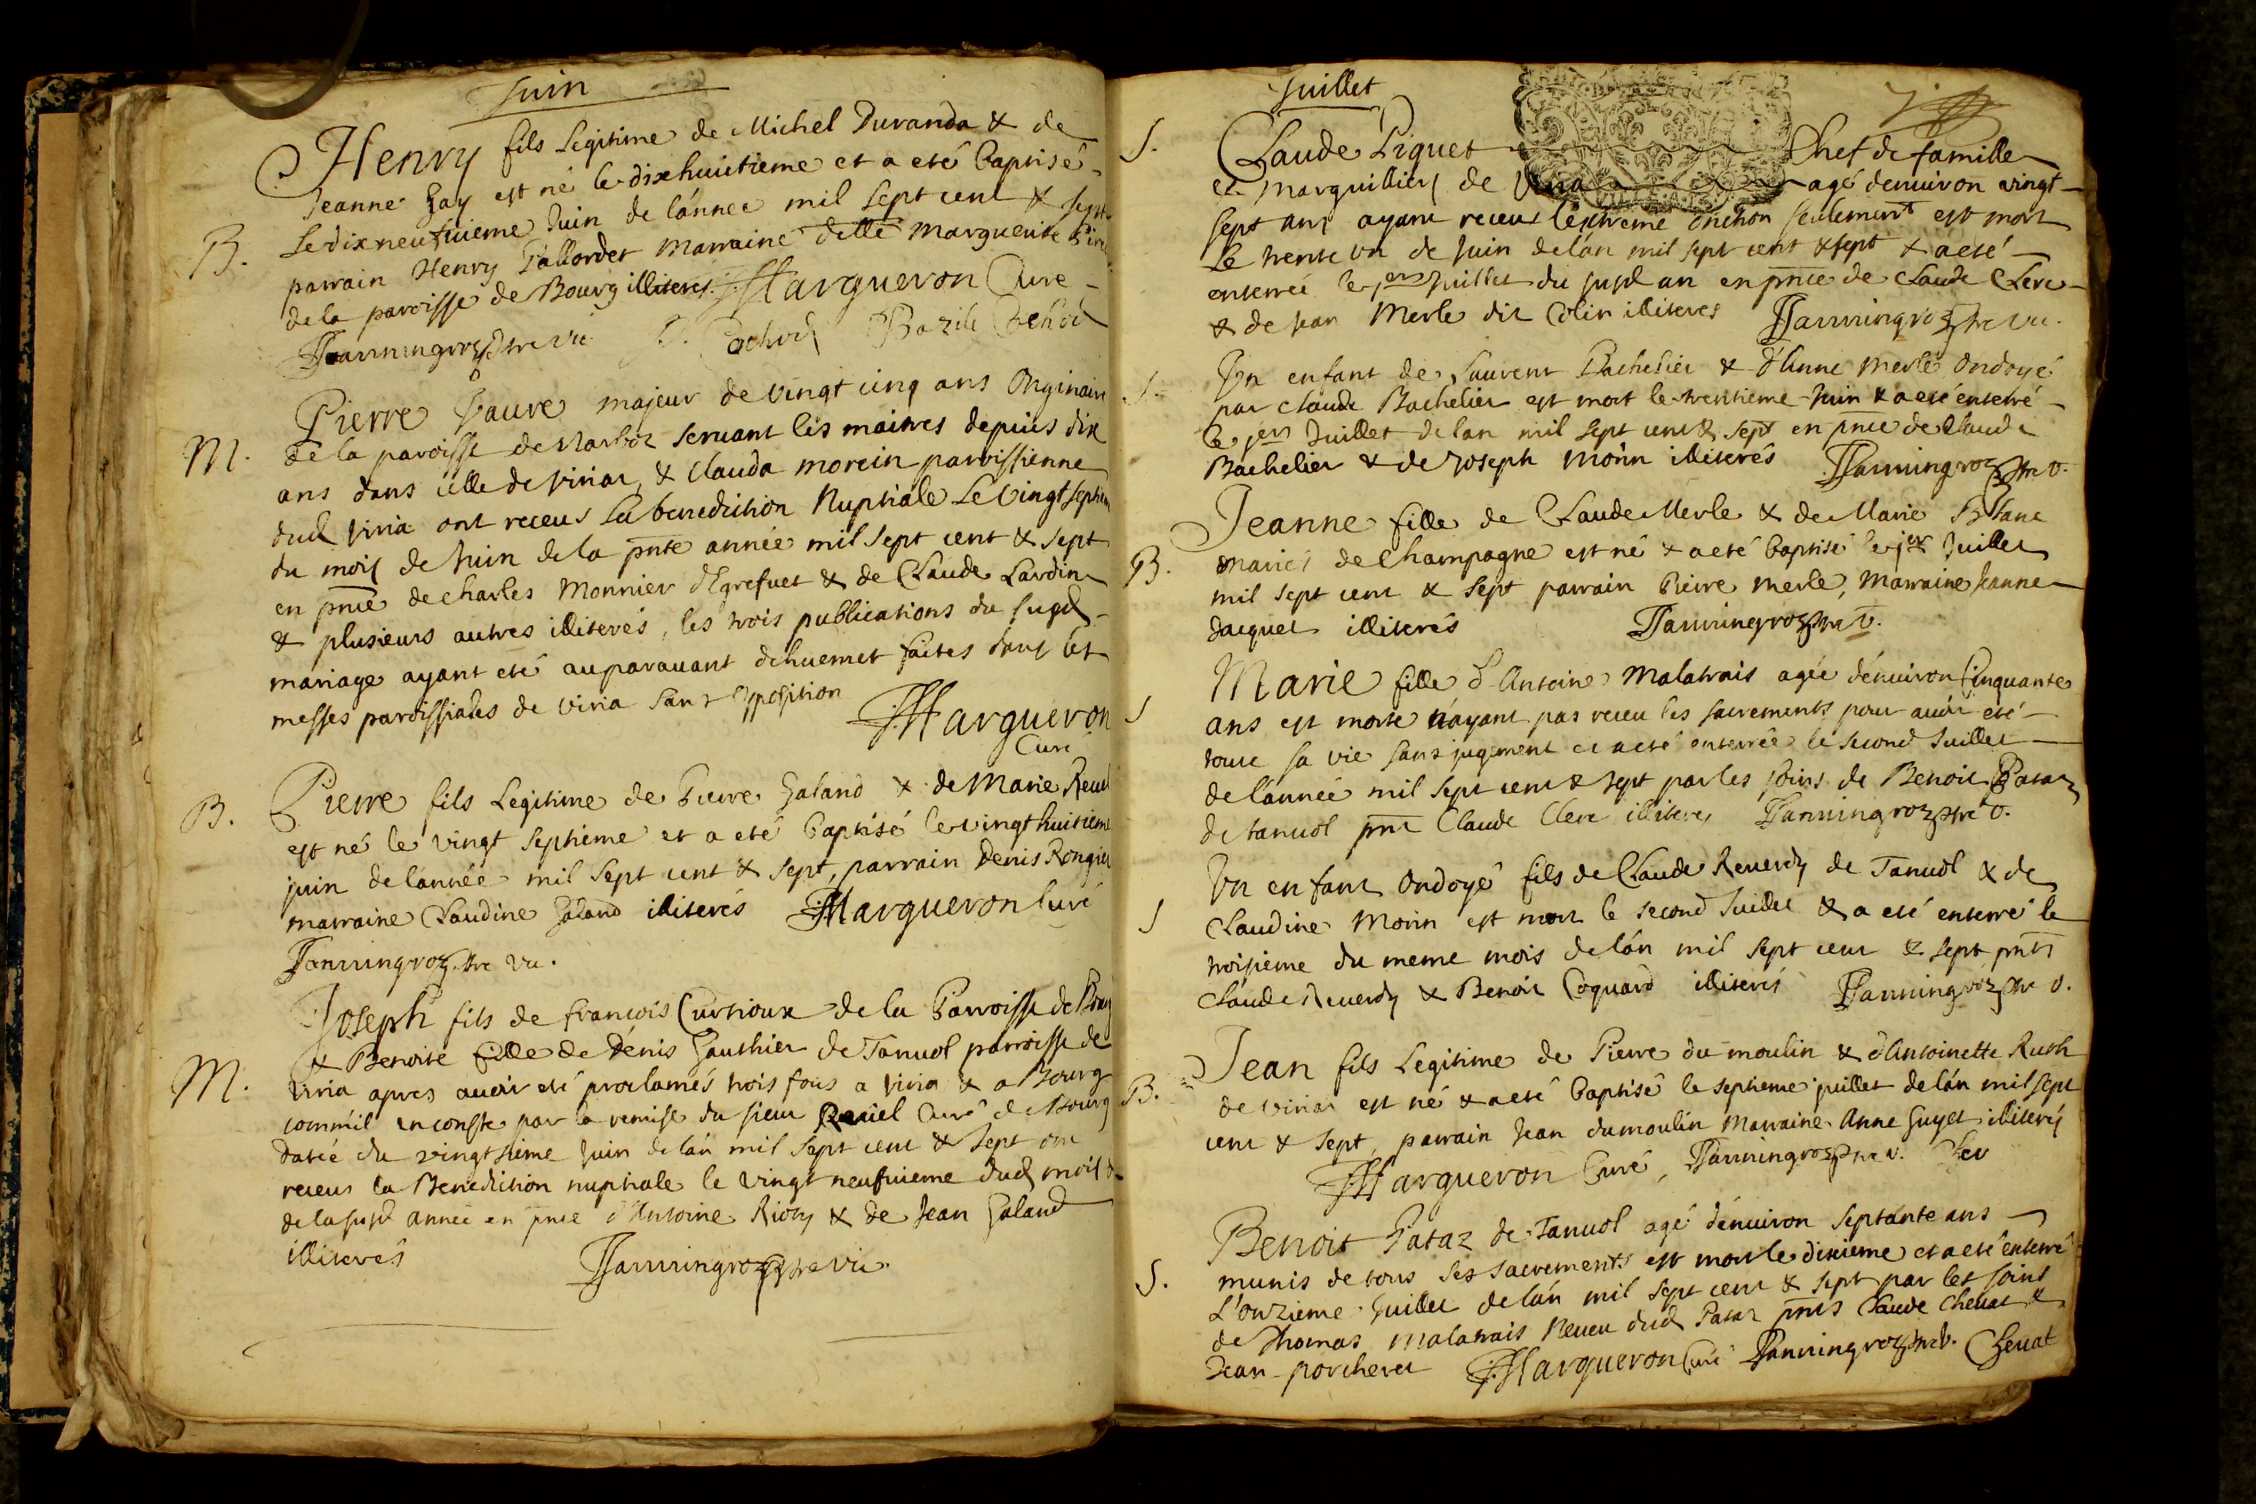 Juin
Henry fils Legitime de Michel Duranda & de
Jeanne Gay est né le dixhuitieme et a eté baptisé
B. Le dixneufuieme Juin de lánnee mil sept cent & sept
parrain Henry Pallordet Marraine delle Marguerite
de la paroisse de Bourg illiterés Margueron Cure
Tanningroz ptre vic
Pierre Faure majeur de vingt cinq ans Originaire
M. de la paroisse de Marboz seruant les maitres depuis dix
ans dans celle de viria, & Clauda morein paroissienne
dud viria ont receus la benediction Nuptiale Le vingt septiem
du mois de Juin de la pnte année mil sept cent & sept
en pnce de charles Monnier d'Egrefuet & de Claude Lardin
& plusieurs autres illiterés, les trois publications du susd
mariage ayant eté auparauant dehuemet faites dans les
messes paroissiales de viria sans opposition
Margueron
Curé
B. Pierre fils Legitime de Pierre Galand & de Marie
est né le vingt septieme et a eté baptisé le vingt huitieme
juin de lannée mil sept cent & sept, parrain Denis Rongier
marraine Claudine Galand illiterés Margueron Curé
Tanningroz ptre vic.
Joseph fils de francois Curtioux de la Parroisse de Bourg
& Benoite fille de Dénis Gauthier de Tanuol parroisse de
M. viria apres auoir eté proclamés trois fois a viria & a Bourg
comm'il en conste par la remise du sieur Curé de Bourg
datée du vingt sieme Juin de lán mil sept cent & sept ont
receus la Benediction nuptiale le vingt neufuieme dud mois &
de la susd année en pnce d'Antoine & de Jean Galand
illiterés Tanningroz ptre vic.
Juillet
S. Claude Piguet Chef de famille
et Marguillier de viria agé denuiron vingt
sept ans ayant receu léxtreme onction seulement est mort
Le trente un de Juin de lán mil sept cent & sept & a eté
enterrée le jer Juillet du susd an en pnce de Claude Clerc
& de Jean Merle dit Colin illiteres Tanningroz ptre vic.
S. Un enfant de Laurent Bachelier & d'Anne Merle Ondoyé
par Claude Bachelier est mort le trentieme Juin & a eté enterré
le jer Juillet de lan mil sept cent & sept en pnce de Claude
Bachelier & de Joseph Morin illiterés Tanningroz ptre v.
Jeanne fille de Claude Merle & de Marie Blanc
B. mariés de Champagne est né & a eté baptisé le jer Juillet
mil sept cent & sept parrain Pierre Merle, Marraine Jeanne
Jacquet illiterés Tanningroz ptre v.
Marie fille d'Antoine Malatrais agée dénuiron Cinquante
S ans est morte n'ayant pas receu les sacrements pour auoir eté
toute sa vie sans jugement et a eté enterrée le second Juillet
de lánnée mil sept cent & sept par les soins de Benoit Pataz
de tanuol pnt Claude Clerc illiteres Tanningroz ptre v.
Un enfant Ondoyé fils de Claude Reuerdy de Tanuol & de
S Claudine Morin est mort le second Juillet & a eté enterré le
troisieme du meme mois de lán mil sept cent & sept pnts
Claude Reuerdy & Benoit Coquard illiterés Tanningroz ptre v.
Jean fils Legitime de Pierre du moulin & d'Antoinette Ruth
B. de viria est né & a eté baptisé le septieme juillet de lán mil sept
cent & sept, parrain Jean dumoulin Marraine Anne Guyet illiterés
Margueron Curé, Tanningroz ptre v.
Benoit Pataz de Tanuol agé dénuiron septante ans
S. munis de tous ses sacrements est mort le dixieme et a eté enterré
L'onzieme Juillet de lán mil sept cent & sept par les soins
de Thomas Malatrais Neueu dud Pataz pnts Claude Cheuat &
Jean porcheret Margueron Curé Tanningroz ptre v. Cheuat